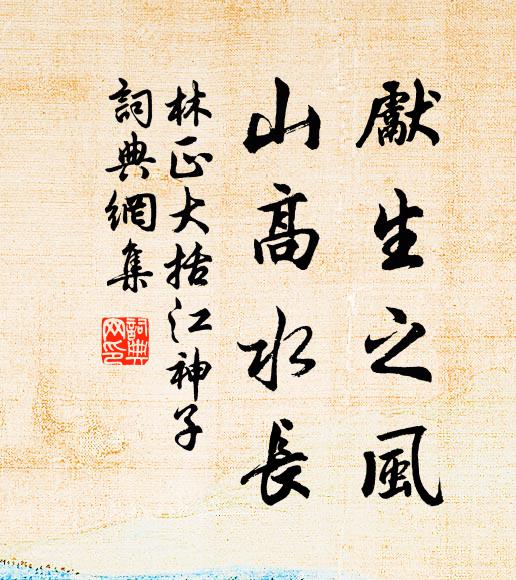 獻生之風
山高水長
林正大括江神子
詞典網集
詞典
网印